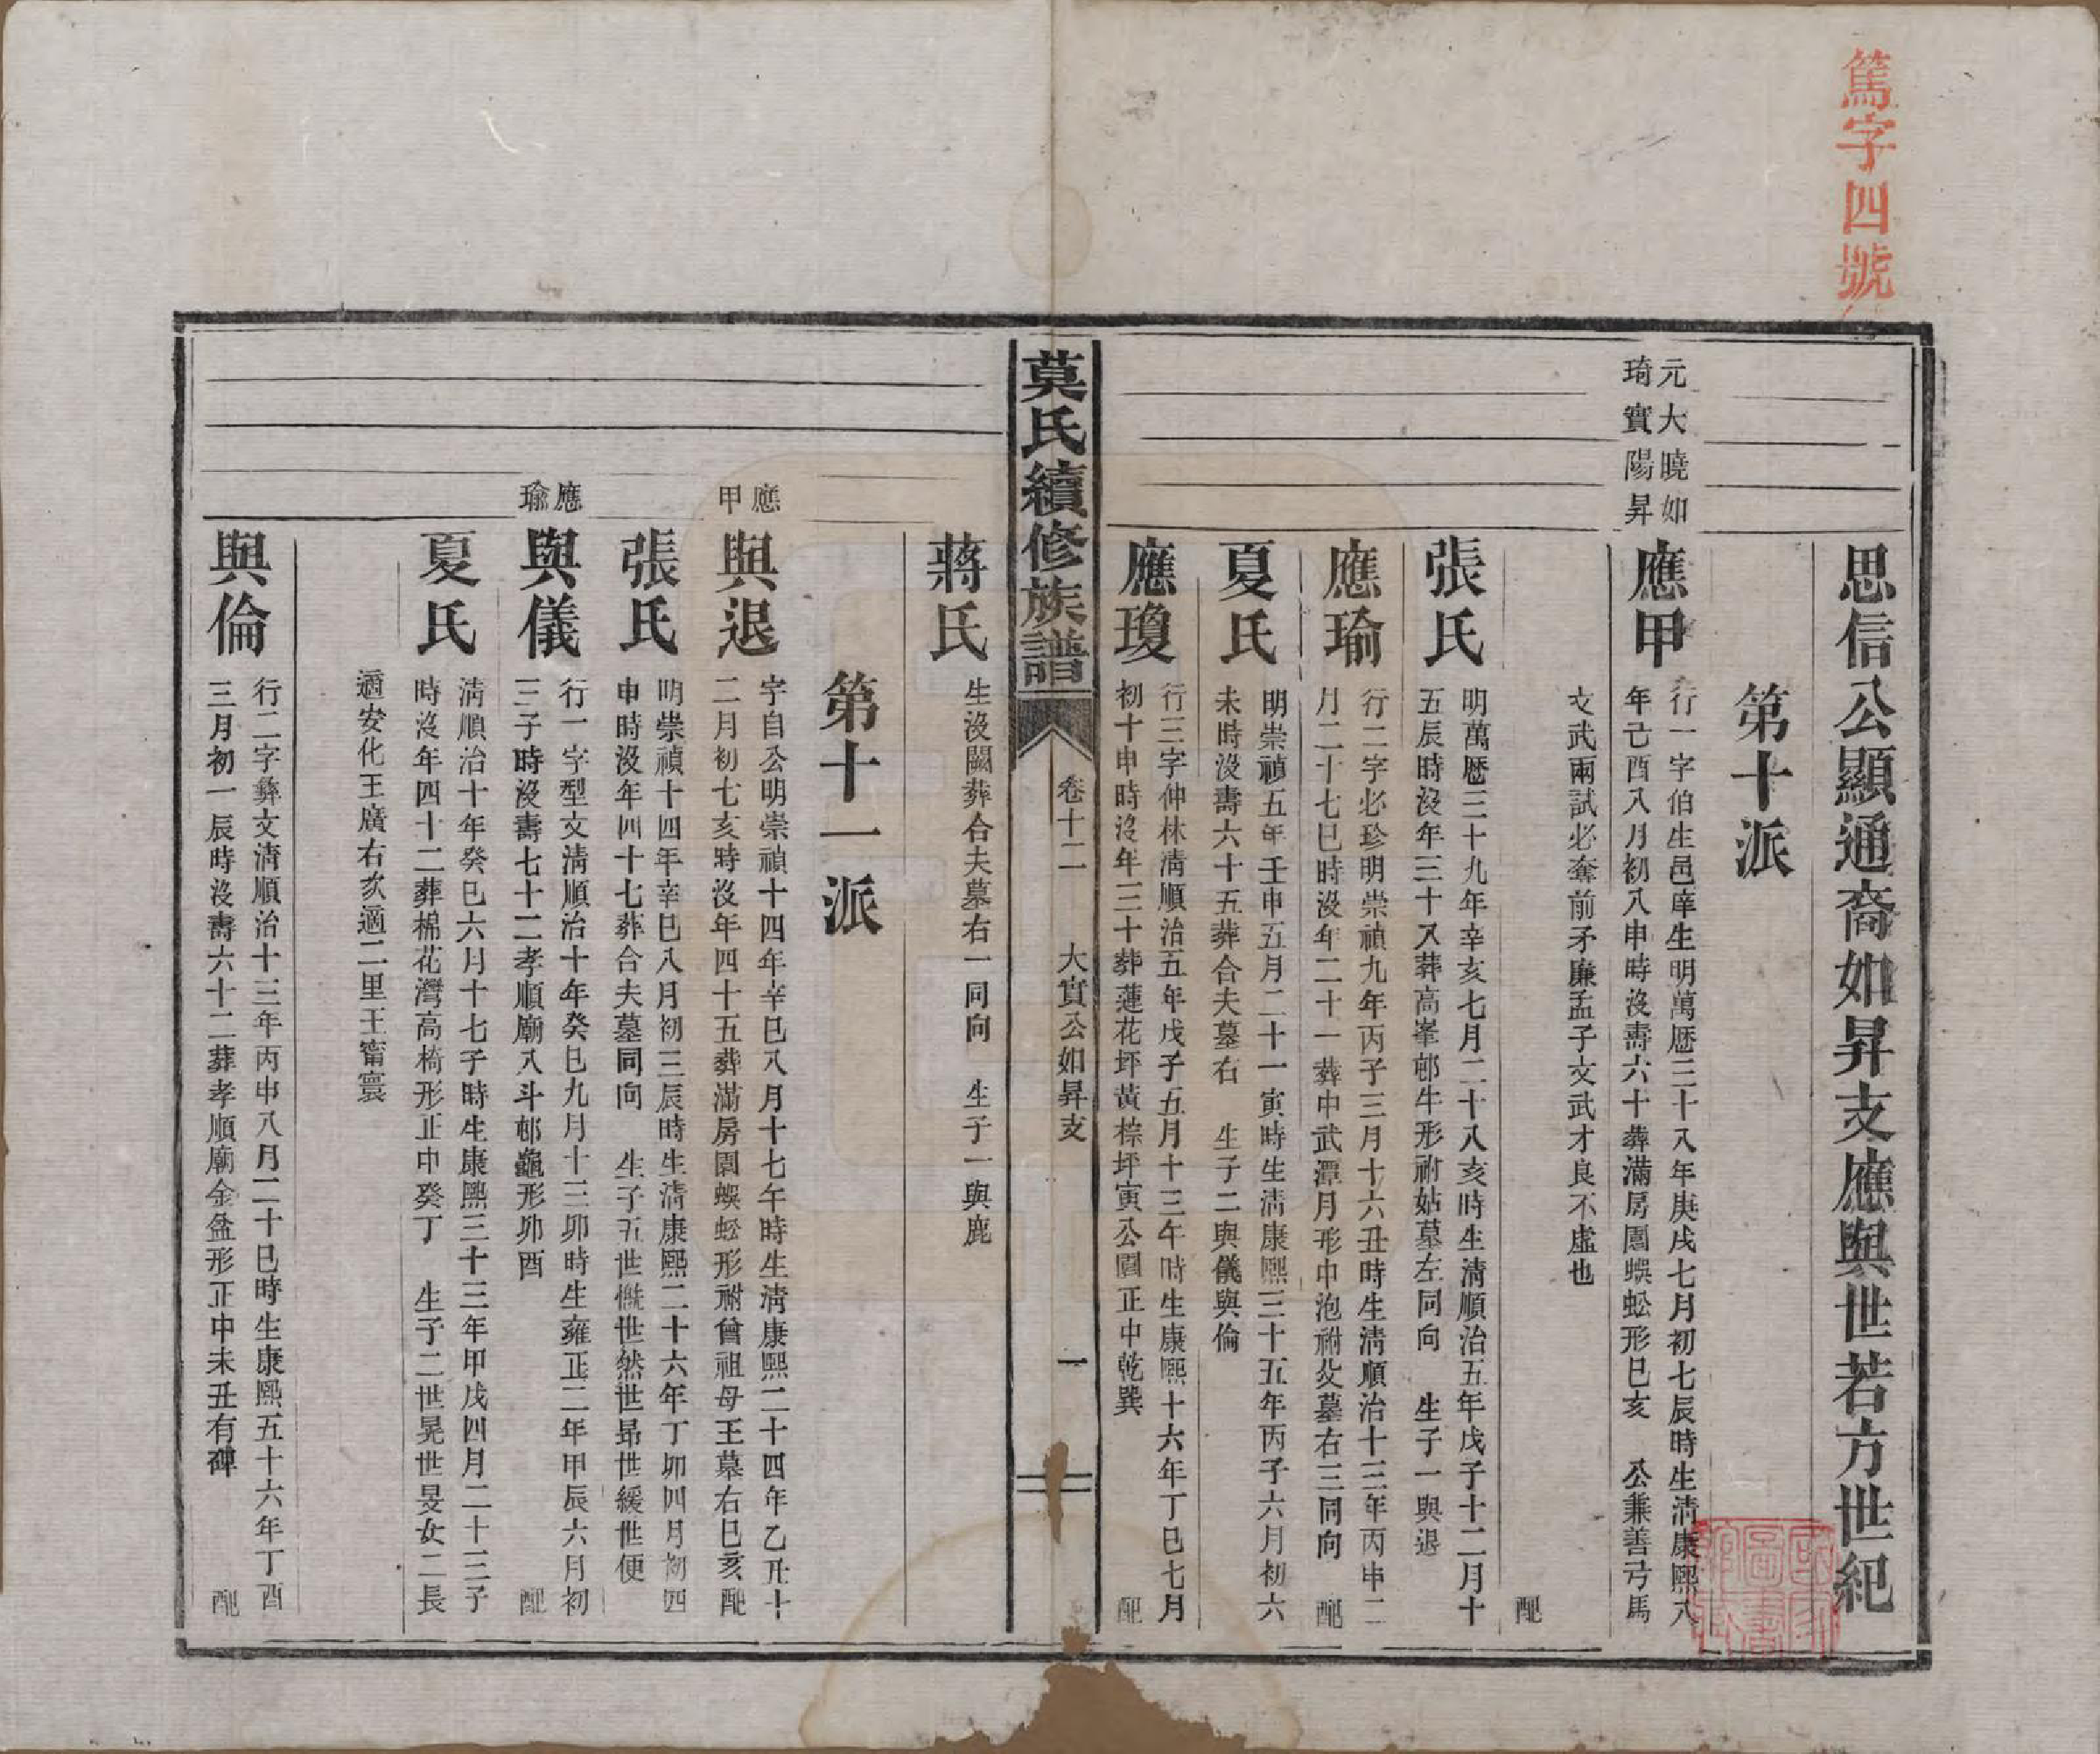 篤字四號
思信公顯通裔如昇支應與世若方世紀
第十派
元大曉如
琦實陽昇
應甲
行一字伯生邑庠生明萬歷三十八年庚戌七月初七辰時生清康熙八
年己酉八月初八申時沒壽六十葬滿房園蜈蚣形巳亥 公兼善弓馬
文武兩試必奪前矛廉孟子文武才良不虛也
配
張氏
明萬歷三十九年辛亥七月二十八亥時生清順治五年戊子十二月十
五辰時沒年三十八葬高峯邨牛形祔姑墓左同向 生子一與退
應瑜
行二字必珍明崇禎九年丙子三月十六丑時生清順治十三年丙申二
月二十七巳時沒年二十一葬中武潭月形中泡祔父墓右三同向 配
夏氏
明崇禎五年壬申五月二十一寅時生清康熙三十五年丙子六月初六
未時沒壽六十五葬合夫墓右 生子二與儀與倫
應瓊
行三字仲林清順治五年戊子五月十三午時生康熙十六年丁巳七月
初十申時沒年三十葬蓮花坪黃棕坪寅公園正中乾巽 配
莫氏續修族譜
卷十二 大實公如昇支 一
蔣氏
生沒闕葬合夫墓右一同向 生子一與鹿
第十一派
應甲
與退
字自公明崇禎十四年辛巳八月十七午時生清康熙二十四年乙丑十
二月初七亥時沒年四十五葬滿房園蜈蚣形祔曾祖母王墓右巳亥 配
張氏
明崇禎十四年辛巳八月初三辰時生清康熙二十六年丁卯四月初四
申時沒年四十七葬合夫墓同向 生子五世慨世然世昂世緩世便
應瑜
與儀
行一字型文清順治十年癸巳九月十三卯時生雍正二年甲辰六月初
三子時沒壽七十二孝順廟八斗邨龜形卯酉 配
夏氏
清順治十年癸巳六月十七子時生康熙三十三年甲戌四月二十三子
時沒年四十二葬棉花灣高椅形正中癸丁 生子二世晃世旻女二長
適安化王廣右次適二里王甯寰
與倫
行二字彝文清順治十三年丙申八月二十巳時生康熙五十六年丁酉
三月初一辰時沒壽六十二葬孝順廟金盆形正中未丑有碑 配